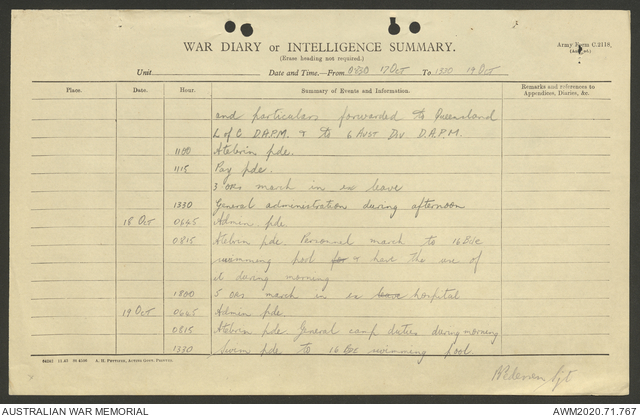 Army Form C.2118.
WAR DIARY or INTELLIGENCE SUMMARY.
(Erase heading not required.)
Unit Date and Time—From 0830 17 Oct To 1330 19 Oct
Place. Date. Hour. Summary of Events and Information. Remarks and references to Appendices, Diaries, &c.
and particulars forwarded to Queensland
L of C DAPM. & to 6 Aust Div D.A.P.M.
1100 Atebrin pde.
1115 Pay pde.
3 ORs march in ex leave
1330 General administration during afternoon
18 Oct 0645 Admin pde
0815 Atebrin pde. Personnel march to 16 Bde
swimming pool for & have the use of
it during morning
1800 5 ORs march in ex leave hospital
19 Oct 0645 Admin pde.
0815 Atebrin pde General camp duties during morning
1330 Swim pde to 16 Bde swimming pool.
Sgt
AUSTRALIAN WAR MEMORIAL
AWM2020.71.767